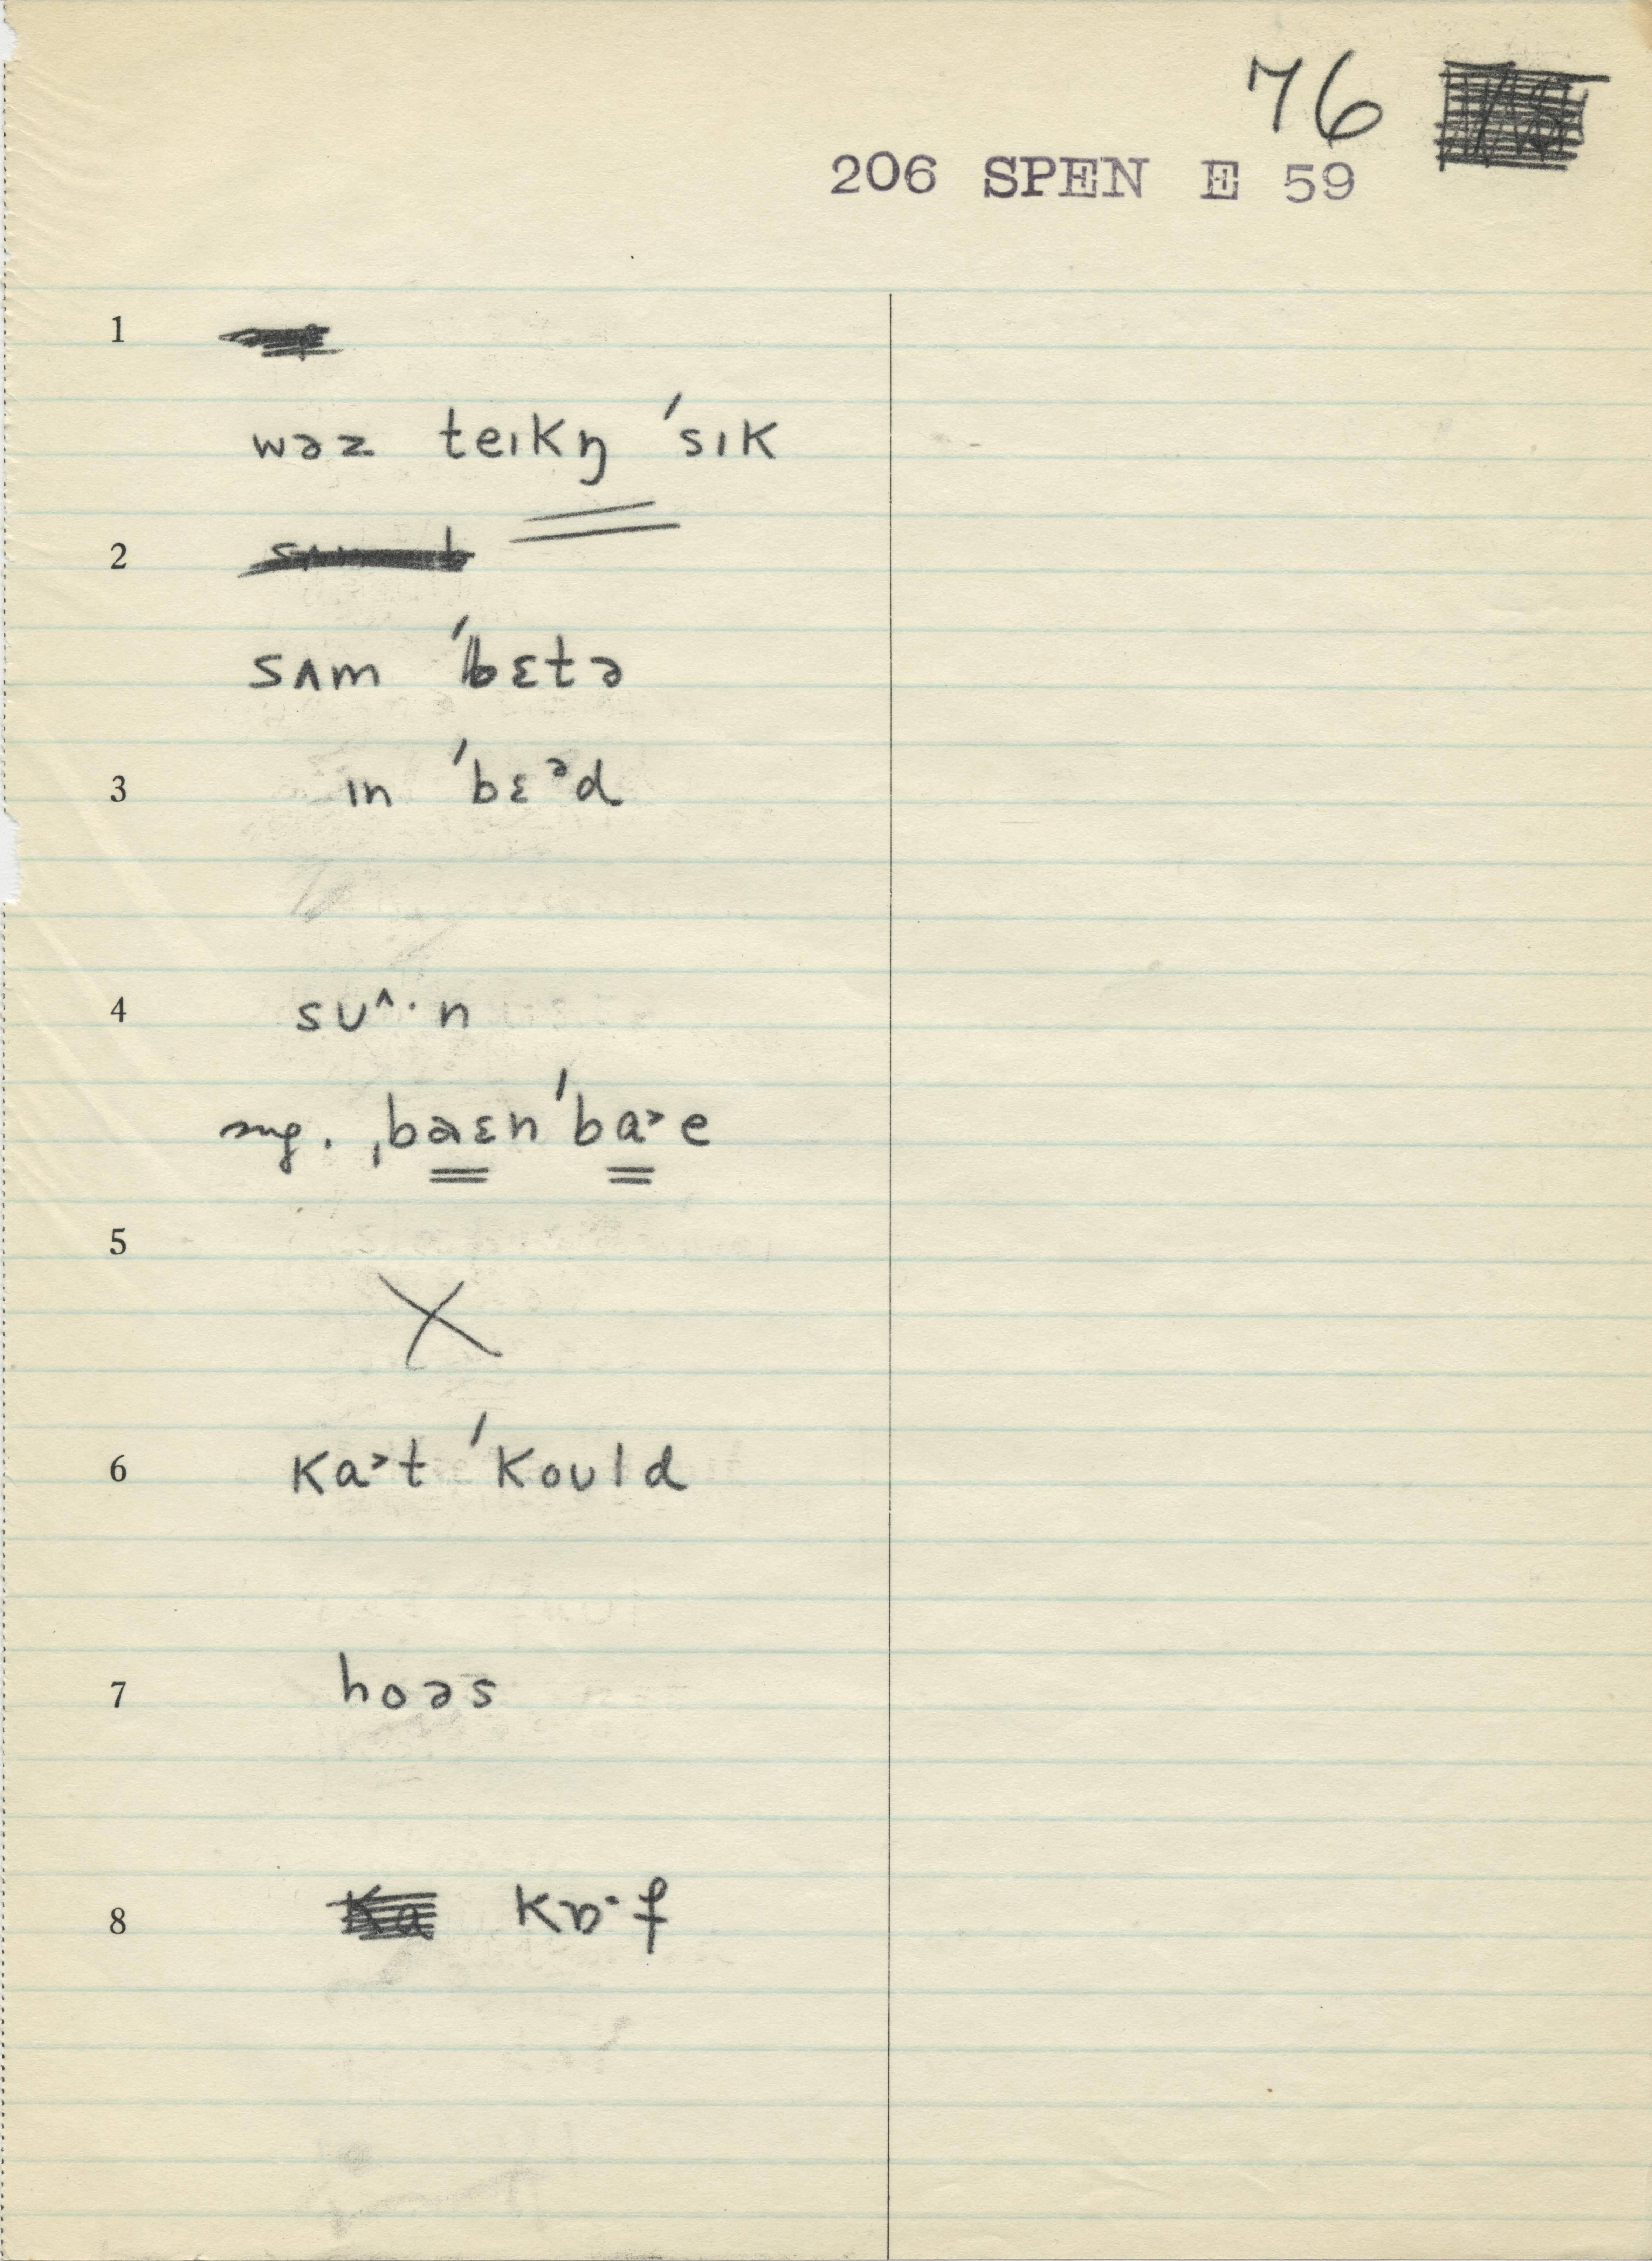 76
206 SPEN E 59
1
wəz teɪkŋ ˈsɪk
2
sʌm ˈbɛtə
3 ɪn ˈbɛᵊd
4 sʊ^·n
sug. ˌbaɛnˈba˃e
5
X
6 ka˃t ˈkoʊld
7 hoəs
8 kɒ·f